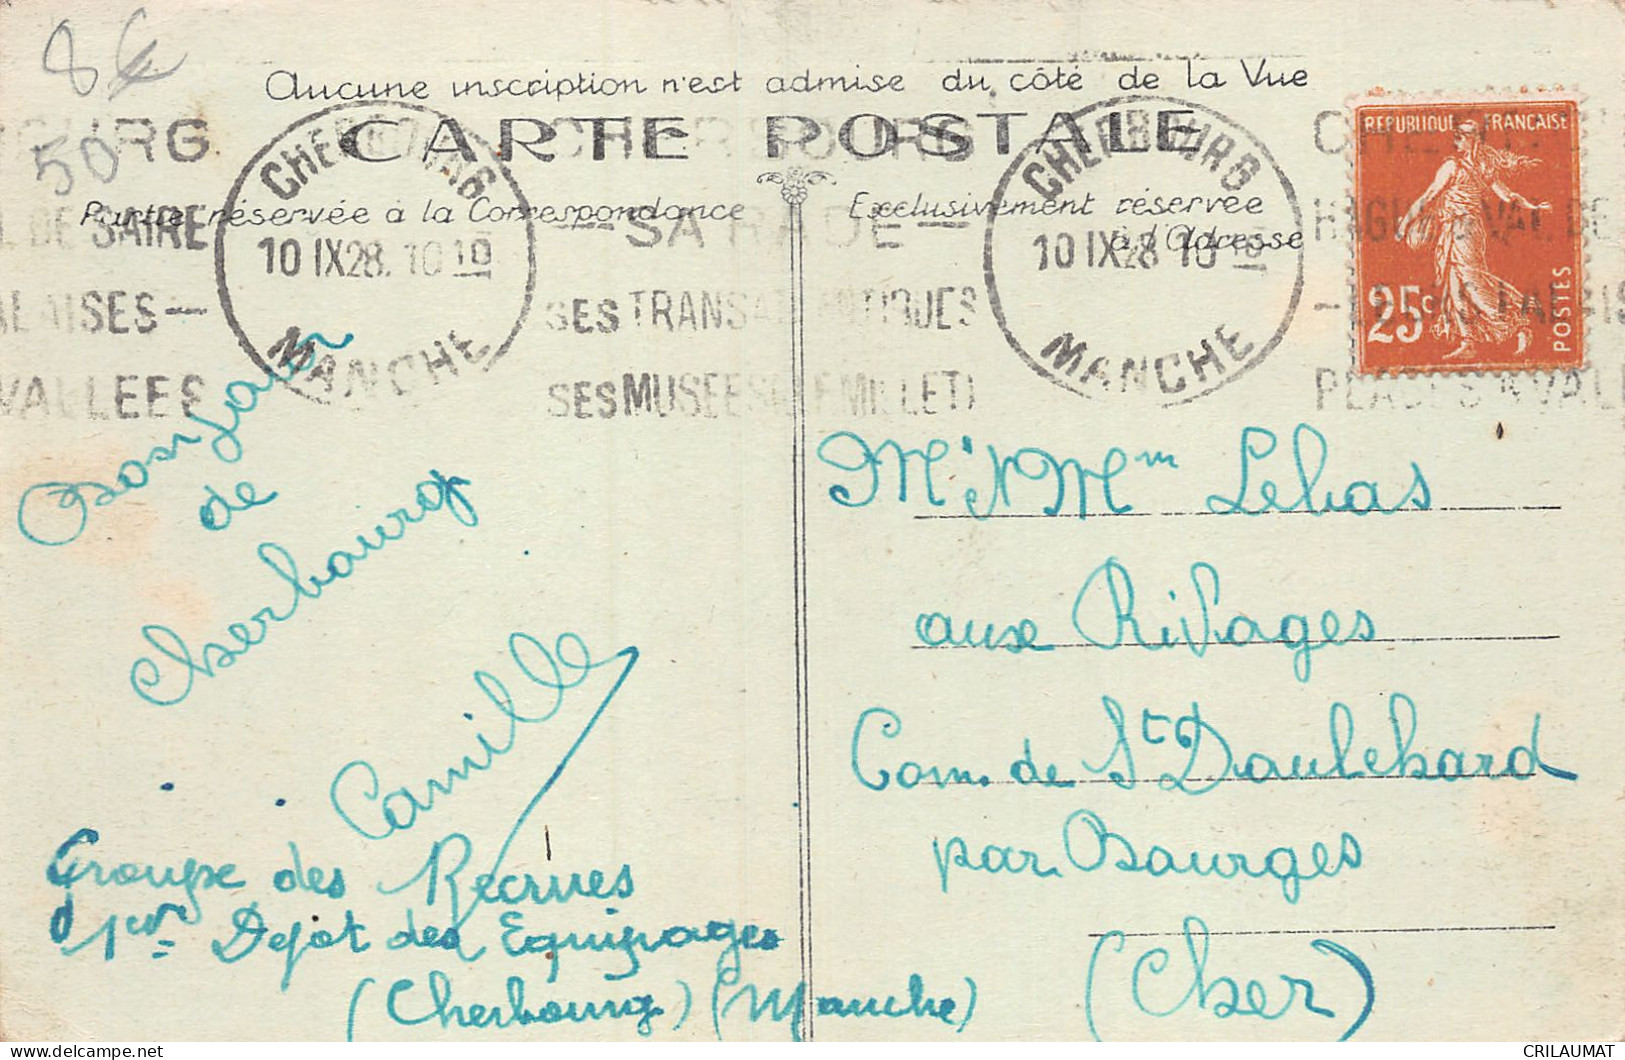 8€
50
Aucune inscription n'est admise du côté de la Vue
CARTE POSTALE
Partie réservée à la Correspondance
Exclusivement réservée
à l'Adresse
CHERBOURG
10 IX 28. 10 10
MANCHE
CHERBOURG
SA RADE
SES TRANSATLANTIQUES
SES MUSEES (E MILLET)
CHERBOURG
10 IX 28 10 10
MANCHE
OURG
L DE SAIRE
ALAISES —
VALLEES
HAGUE & VAL DE
REPUBLIQUE FRANÇAISE
25c
POSTES
Bonjour
de
Cherbourg
Camille
Groupe des Recrues
1er Depot des Equipages
(Cherbourg) (Manche)
Mr & Mme Lebas
aux Rivages
Com. de St Doulchard
par Bourges
(Cher)
CRILAUMAT